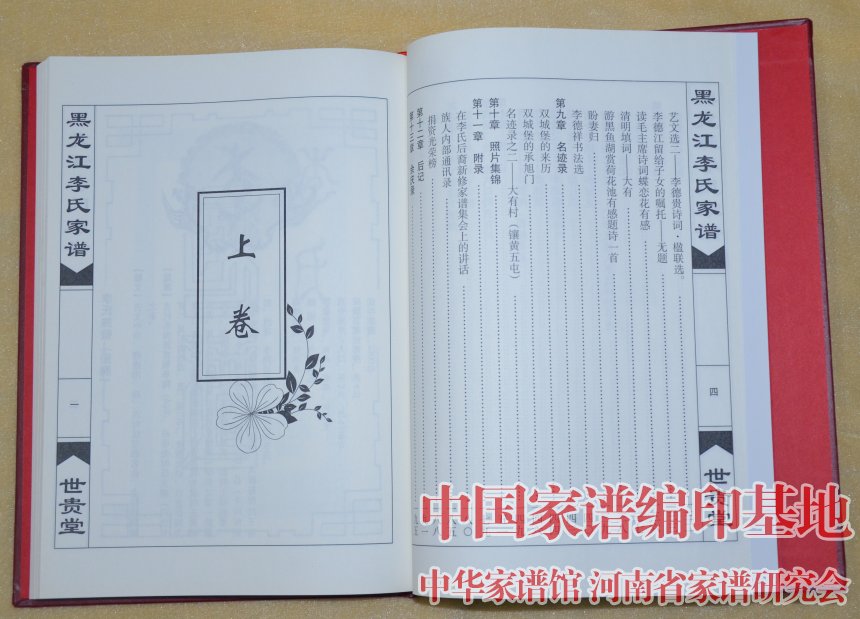 黑龙江李氏家谱
四
世贵堂
艺文选二——李德贵诗词·楹联选。
李德江留给子女的嘱托——无题
读毛主席诗词蝶恋花有感
清明填词——大有
游黑鱼湖赏荷花池有感题诗一首
盼妻归
李德祥书法选
第九章 名迹录
双城堡的来历
双城堡的承旭门
名迹录之二——大有村（镶黄五屯）
第十章 照片集锦
第十一章 附录
在李氏后裔新修家谱集会上的讲话
族人内部通讯录
捐资光荣榜
第十二章 后记
上卷
黑龙江李氏家谱
一
世贵堂
中国家谱编印基地
中华家谱馆 河南省家谱研究会